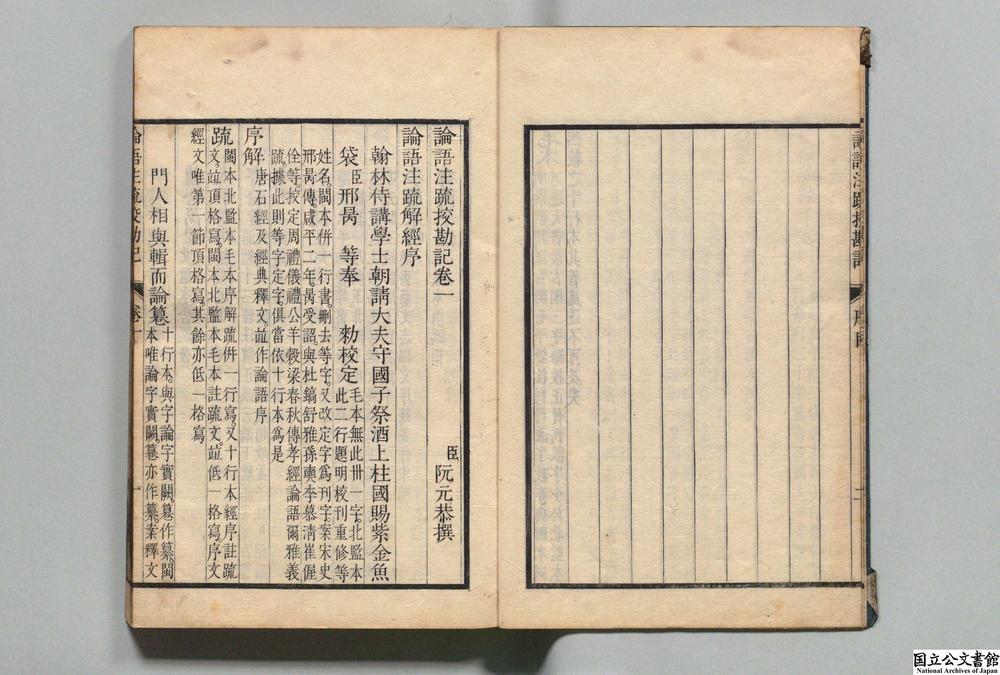 論語注疏挍勘記
序目
二
論語注疏挍勘記卷一
臣阮元恭撰
論語注疏解經序
翰林侍講學士朝請大夫守國子祭酒上柱國賜紫金魚
袋臣邢昺 等奉 勑校定
毛本無此卅一字。北監本
此二行題明校刊重修等
姓名。閩本併一行書。刪去等字。又改定字爲刊字。案宋史
邢昺傳。咸平二年。昺受詔。與杜鎬舒雅孫奭李慕淸崔偓
佺等。挍定周禮儀禮公羊穀梁春秋傳孝經論語爾雅義
疏。據此則等字定字。俱當依十行本爲是
序解
唐石經及經典釋文竝作論語序
疏
閩本北監本毛本序解疏併一行寫。又十行本經序註疏
文。竝頂格寫。閩本北監本毛本註疏文。竝低一格寫。序文
經文唯第一節頂格寫。其餘亦低一格寫
門人相與輯而論篹
十行本。與字論字實闕。篹作纂。閩
本唯論字實闕。篹亦作纂。案釋文
論語注疏挍勘記
卷一
一
国立公文書館
National Archives of Japan